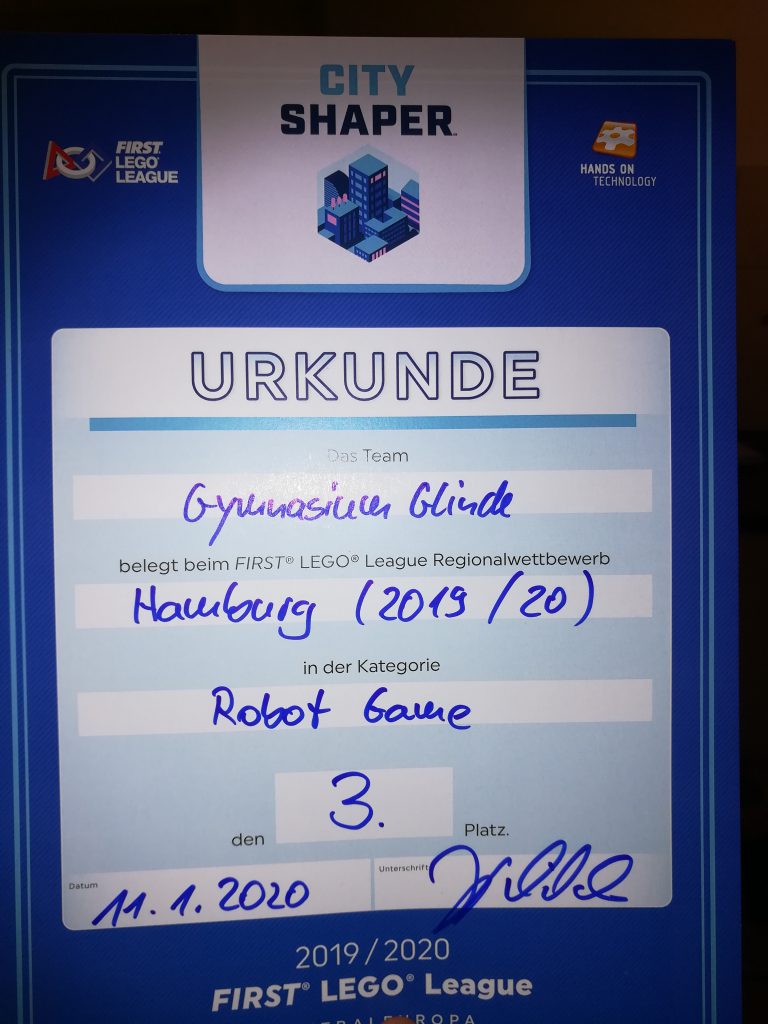 CITY
SHAPER™
FIRST®
LEGO®
LEAGUE
HANDS ON
TECHNOLOGY
URKUNDE
Das Team
Gymnasium Glinde
belegt beim FIRST® LEGO® League Regionalwettbewerb
Hamburg (2019/20)
in der Kategorie
Robot Game
den 3. Platz.
Datum
11.1.2020
Unterschrift
2019/2020
FIRST® LEGO® League